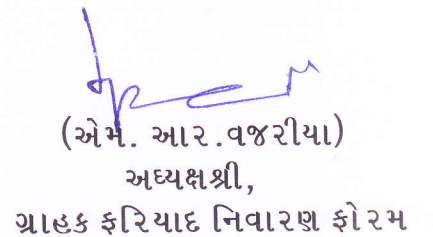 (એમ. આર.વજરીયા)
અધ્યક્ષશ્રી,
ગ્રાહક ફરિયાદ નિવારણ ફોરમ